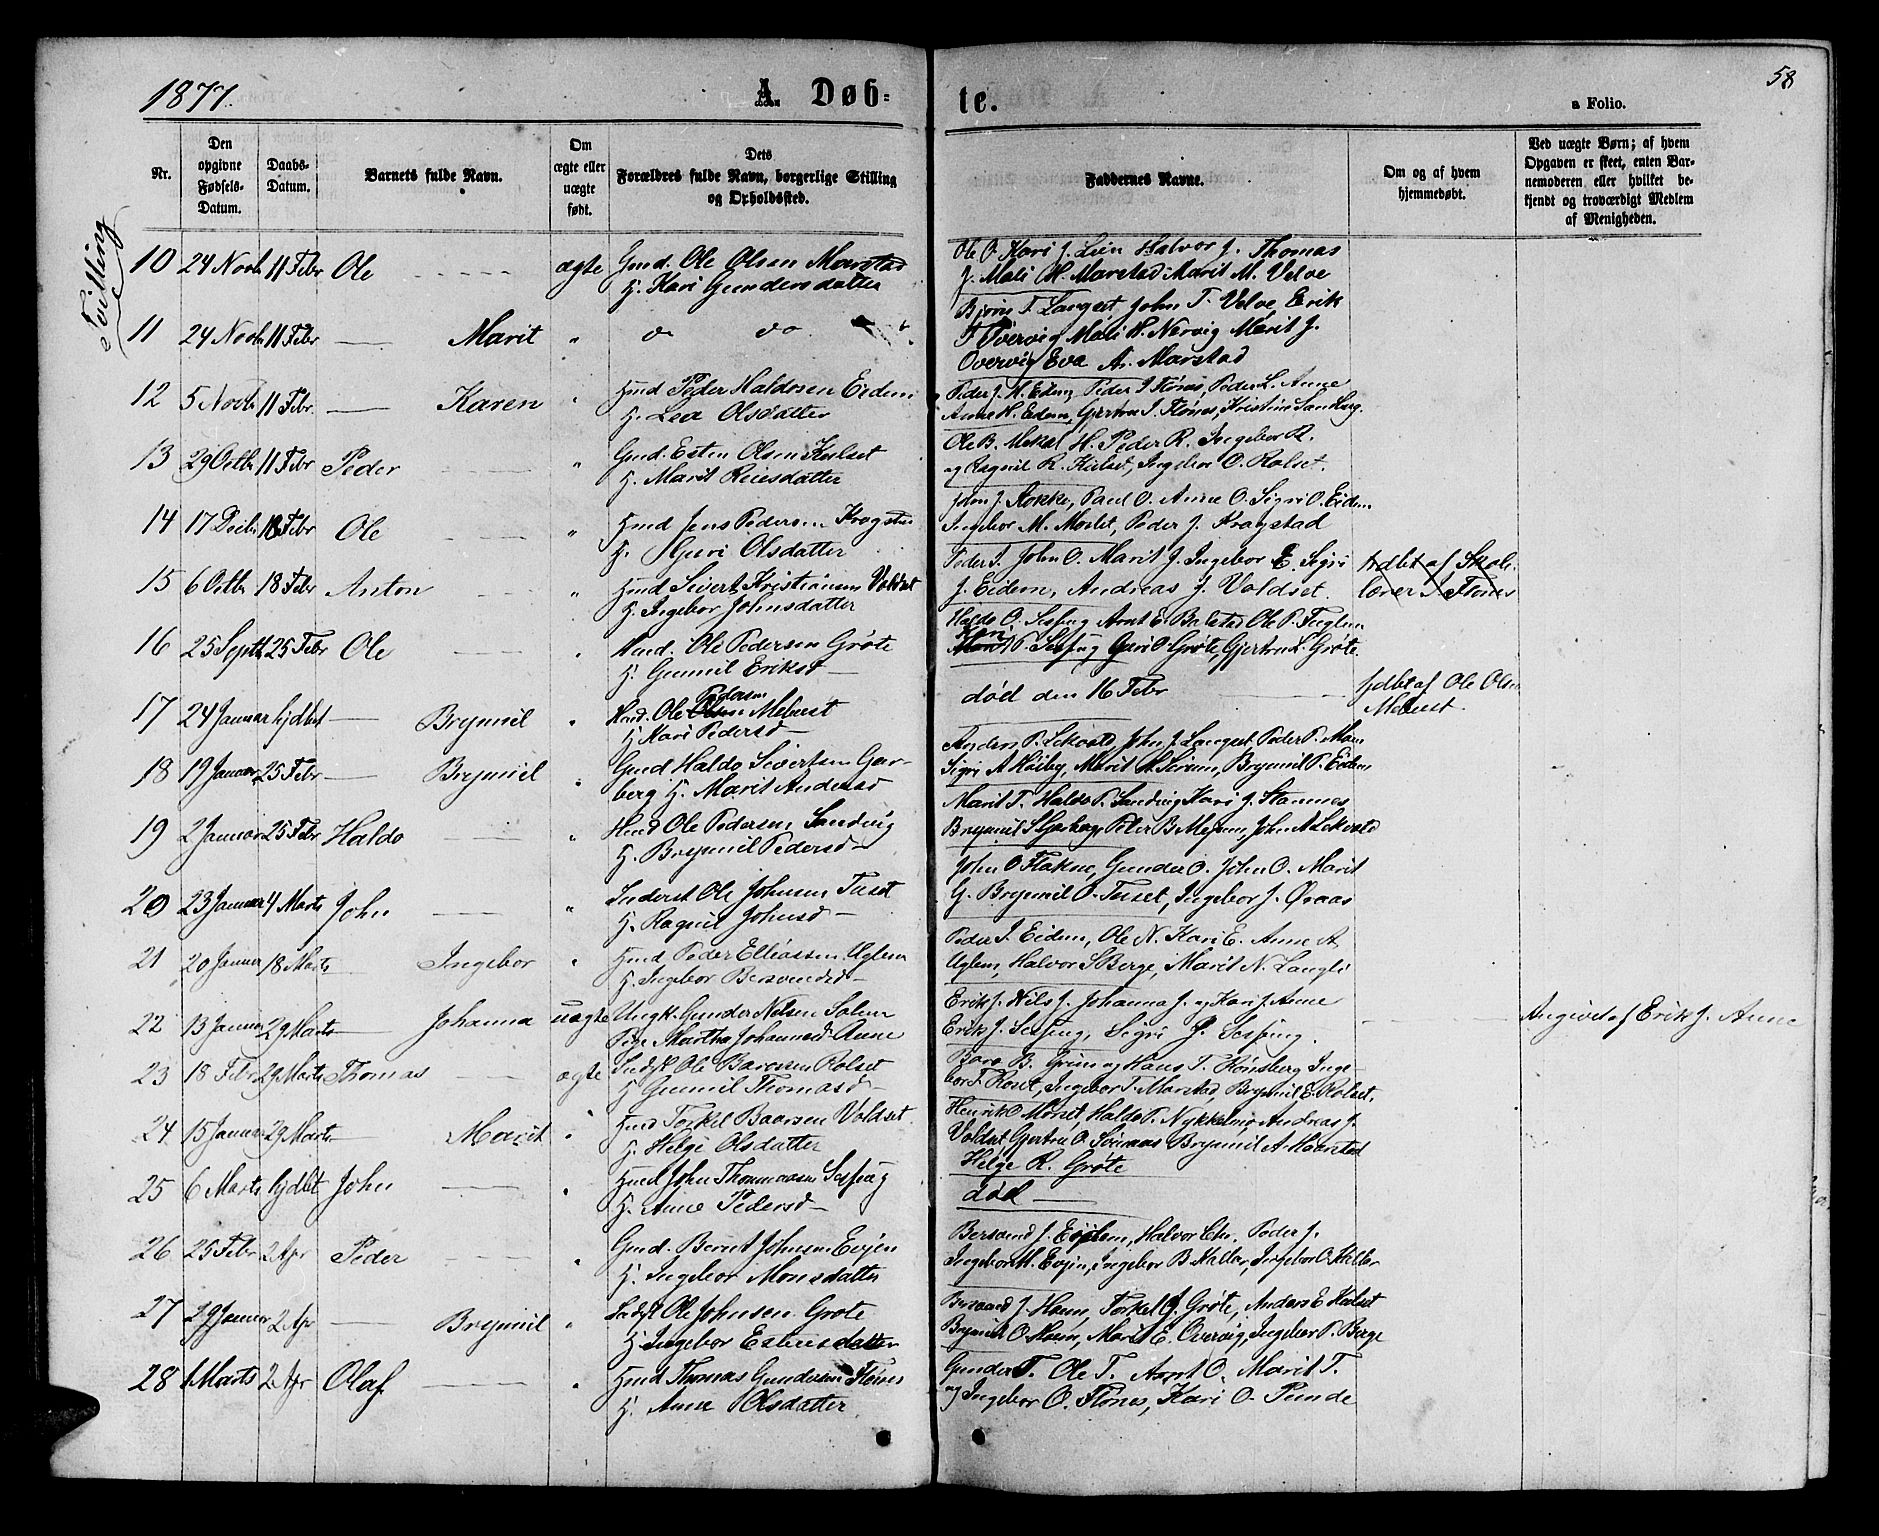 1877.
A Døb=
te.
a Folio.
58
Nr.
Den opgivne Fødsels-Datum.
Daabs-Datum.
Barnets fulde Navn.
Om ægte eller uægte født.
Dets Forældres fulde Navn, borgerlige Stilling og Opholdssted.
Faddernes Navne.
Om og af hvem hjemmedøbt.
Ved uægte Børn; af hvem Opgaven er skeet, enten Barnemoderen eller hvilket bekjendt og troværdigt Medlem af Menigheden.
Tvilling
10 24 Novbr 11 Febr Ole ægte Gmd. Ole Olsen Marstad
H. Kari Gundersdatter
Ole O. Kari J. Lien Halvor J. Thomas
J. Mali H. Marstad Marit M. Velve
11 24 Novbr 11 Febr Marit " do do
Bjørn T. Langset, John T. Velve Erik
T. Overvig Mali H. Nervig Marit J.
Overvig Eva A. Marstad
12 5 Novbr 11 Febr. Karen " Hmd Peder Haldosen Eidem
H. Lea Olsdatter
Peder J. H. Eidem, Peder J. Flønes, Peder L. Anne
Anne H. Eidem, Gjertru I. Flønes, Kristine Sandberg.
13 29 Octbr 11 Febr Peder " Gmd. Esten Olsen Kulset
H. Marit Reiersdatter
Ole B. Mekal H. Peder R. Ingebor R.
og Ragnil R. Kulset, Ingebor O. Rolset.
14 17 Decbr 18 Febr Ole " Hmd Jens Pedersen Kragstad
H. Guri Olsdatter
John J. Stokke, Paul O. Anne O. Sigri O. Eidem
Ingebor M. Moslet, Peder J. Kragstad
15 6 Octbr 18 Febr Anton " Hmd Sivert Kristiansen Voldset
H. Ingebor Johnsdatter
Peder I. John O. Marit J. Ingebor E. Sigri
J. Eidem, Andreas J. Voldset.
hdbt af Skole-
lærer I Flønes
16 25 Septbr 25 Febr Ole " Hmd. Ole Pedersen Grøte
H. Gunnil Eriksd
Haldo O. Sesseng Arnt E. Balstad Ole P. Fuglem
Kari P. Sesseng Guri O Grøte, Gjertru L. Grøte.
17 24 Januar hjdbt Brynnil " Hmd. Ole Pedersen Mebust
H Kari Pedersd
død den 16 Febr
hjdbt af Ole Olsen
Mebust.
18 19 Januar 25 Febr Brynnil " Gmd Haldo Sivertsen Gar-
berg H. Marit Andersd
Anders P. Lekvold, John J. Langset Peder P. Moen
Sigri A Høiby, Marit H. Serum, Brynnil P. Eidem
19 2 Januar 25 Febr Haldo " Hmd Ole Pedersen Sandvig
H. Brynnil Pedersd
Marit T. Haldo P. Sandvig Kari J. Stamnes
Brynnil S Garberg Peter B Mosum John A Lekvold
20 23 Januar 4 Marts John " Inderst Ole Johnsen Tuset
H. Ragnil Johnsd
John O Flakne, Gunder O. John O. Marit
G. Brynnil O. Tuset, Ingebor J. Øraas
21 20 Januar 18 Marts Ingebor " Hmd Peder Elliassen Uglem
H. Ingebor Bersvendsd
Peder J. Eidem, Ole N. Kari E. Anne A
Uglem, Halvor S Berge, Marit N. Langli
22 13 Januar 29 Marts Johanna uægte Ungk. Gunder Nilsen Solem
Pige Martha Johannesd Aune
Erik J. Nils J. Johanna J. og Kari J. Aune
Erik J. Sesseng, Sigri P. Sesseng.
Angivet af Erik J. Aune
23 18 Febr 29 Marts Thomas ægte Indst Ole Baresen Rolset
H Gunnil Thomasd
Bare B. Grim og Hans T. Rønsberg Inge-
bor T. Roset, Ingebor T. Marstad, Brynnil E. Rolset.
24 15 Januar 29 Marts Marit " Hmd Torkel Baarsen Voldset
H. Helge Olsdatter
Henrik O. Morset, Haldo P. Nykkelmo Andreas J.
Voldset, Gjertru O. Stennaas Brynnil A. Maarstad
Helge R. Grøte
25 6 Marts hjdbt John " Hmd John Thommassen Sesseng
H. Anne Pedersd
død
26 25 Febr 2 Apr Peder " Gmd. Bernt Johnsen Evjen
H. Ingebor Monsdatter
Bersvend J. Evjen, Halvor Chr. Peder J.
Ingebor M. Evjen, Ingebor B. Kallar, Ingebor O. Kallar
27 29 Januar 2 Apr Brynnil " Indst Ole Johnsen Grøte
H Ingebor Estensdatter
Bersvend J. Moen, Torkel J. Grøte, Anders E. Kulset
Brynnil O. Moen, Marit E. Overvig, Ingebor P. Berge
28 1 Marts 2 Apr Olaf " Hmd Thomas Gundersen Flønes
H. Anne Olsdatter
Gunder T. Ole T. Arnt O. Marit T.
og Ingebor O. Flønes, Kari O. Punde